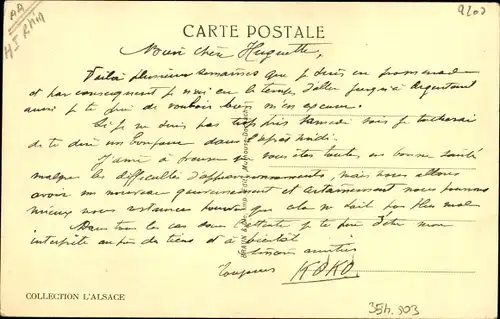 AA
H^t Rhin
9207
CARTE POSTALE
Mon cher Huguette,
Voilà plusieurs semaines que je suis en promenade
et par conséquent je n'ai eu le temps d'aller jusqu'à Argentant
aussi je te prie de vouloir bien m'en excuser.
Si je ne suis pas trop pris samedi soir je tacherai
de te dire un bonjour dans l'après midi.
J'aime à trouver vous êtes toutes en bonne santé
malgré les difficultés d'approvisionnements, mais nous allons
avoir un nouveau gouvernement et certainement nous pourrons
mieux nous pourvu que cela ne soit pas plus mal
Dans tous les cas dans l'attente je te prie d'être mon
interprète auprès des tiens et à bientôt
Sincères amitiés
Toujours KOKO
BRAUN & Cie, Imp. Edit. Mulhouse-Dornach
COLLECTION L'ALSACE
354.903